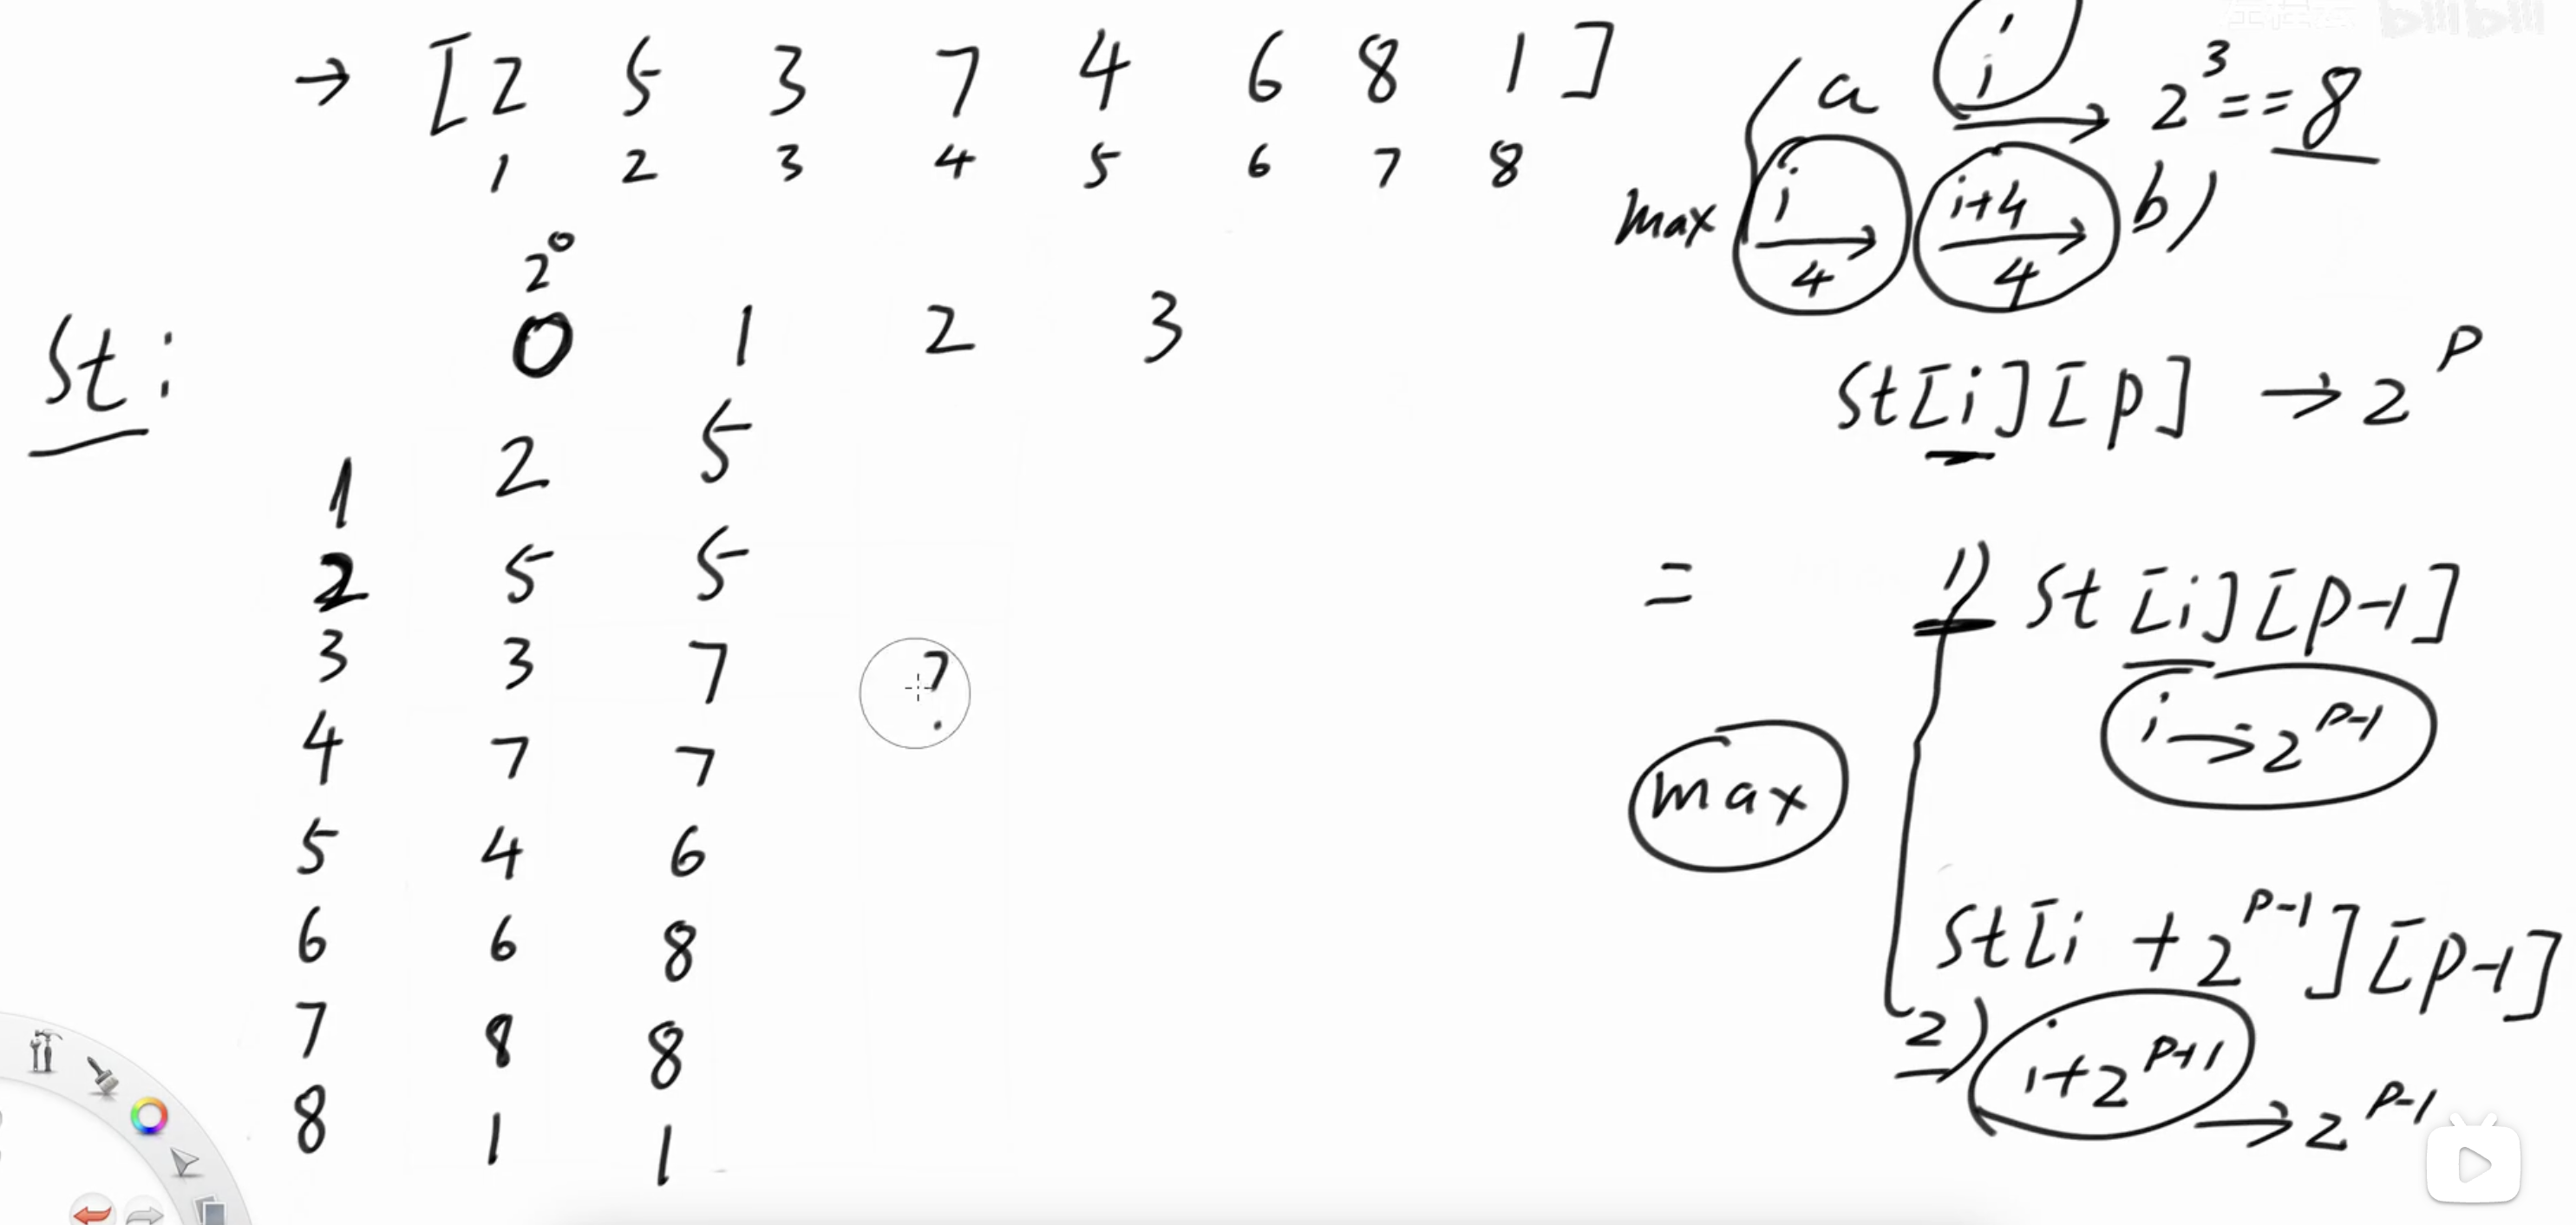 → [2 5 3 7 4 6 8 1]
1 2 3 4 5 6 7 8
2⁰
St: 0 1 2 3
1 2 5
2 5 5
3 3 7 ?
4 7 7
5 4 6
6 6 8
7 8 8
8 1 1
i
i → 2³ == 8
max (a i → 4 i+4 → 4 b)
St[i][p] → 2^p
= max
1) St[i][p-1]
i → 2^p-1
St[i + 2^p-1][p-1]
2) i+2^p+1 → 2^p-1
bilibili